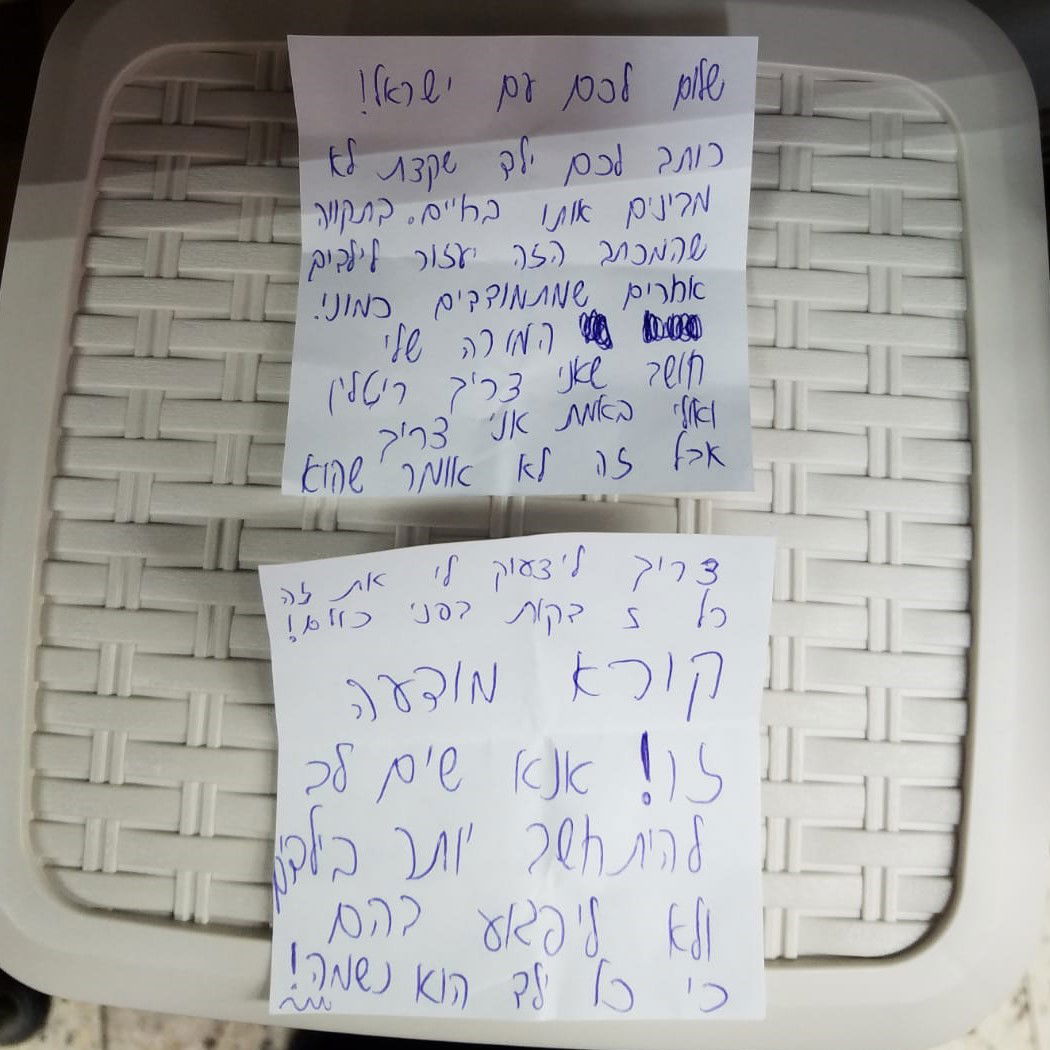 שלום לכם עם ישראל!
כותב לכם ילד שקצת לא
מבינים אותו בחיים. בתקווה
שהמכתב הזה יעזור לילדים
אחרים שמתמודדים כמוני!
המורה שלי
חושב שאני צריך ריטלין
ואולי באמת אני צריך
אבל זה לא אומר שהוא
צריך ליצעוק לי את זה
כל 5 דקות בפני כולם!
קורא מודעה
זו! אנא שים לב
להיתחשב יותר בילדים
ולא ליפגוע בהם
כי כל ילד הוא נשמה!